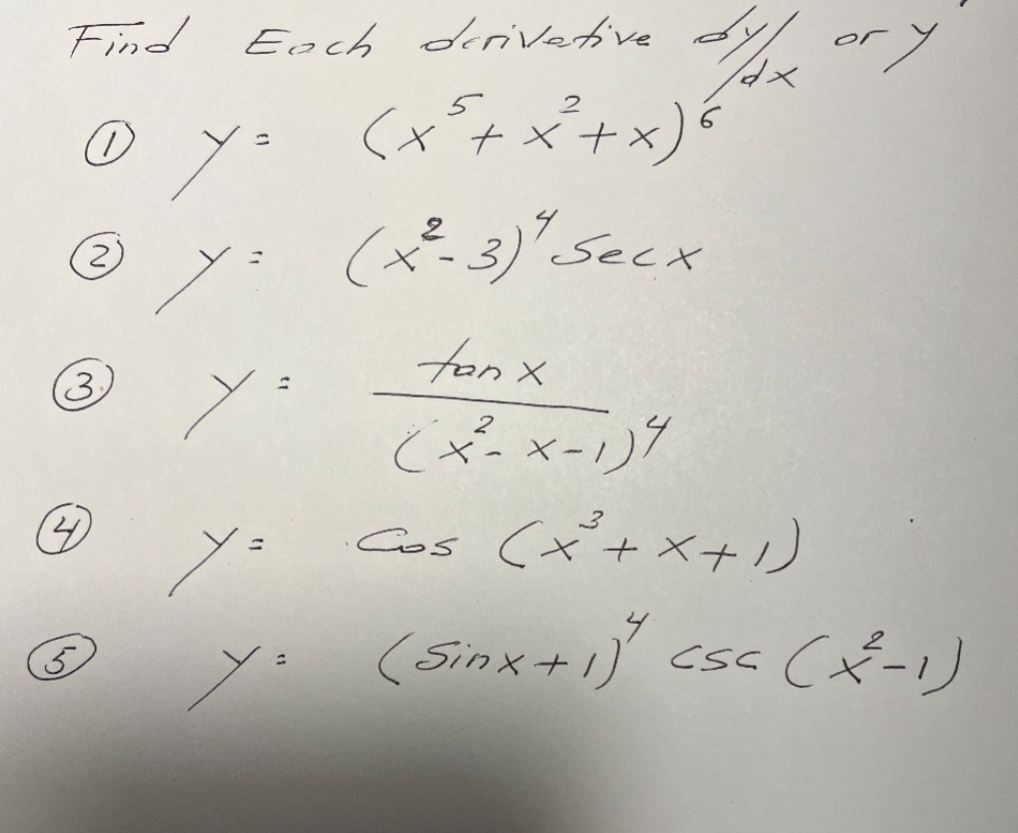 Find Each derivative dy/dx or y'
① y = (x⁵ + x² + x)⁶
② y = (x² - 3)⁴ Sec x
③ y = tan x / (x² - x - 1)⁴
④ y = Cos (x³ + x + 1)
⑤ y = (Sinx + 1)⁴ csc (x² - 1)